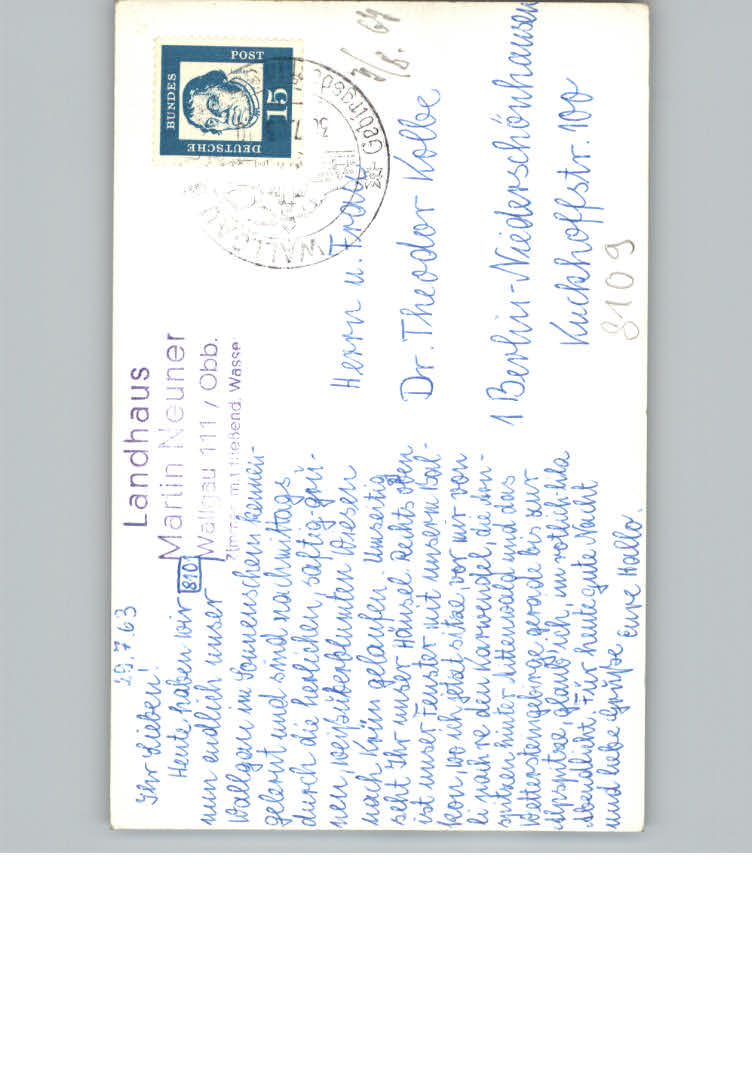 29.7.63
Ihr Lieben!
Heute haben wir
nun endlich unser
Wallgau im Sonnenschein kennen-
gelernt und sind nachmittags
durch die herrlichen, saftig-grü-
nen, weißüberblumten Wiesen
nach Krün gelaufen. Umseitig
seht Ihr unser Häusel. Rechts oben
ist unser Fenster mit unserm Bal-
kon, wo ich jetzt sitze, vor mir von
li nach re den Karwendel, die
spitzen hinter Mittenwald und das
Wettersteingebirge gerade bis zur
Alpspitze, glaub ich, im rötlich-lila
Abendlicht. Für heute gute Nacht
und liebe Grüße Eure Hallo.
Landhaus
Martin Neuner
8101 Wallgau 111 / Obb.
Zimmer m. fließend. Wasse
DEUTSCHE BUNDES POST
15
WALLGAU
Gebirgsd
30.7
3/8. 64
Herrn u. Frau
Dr. Theodor Kolbe
1 Berlin-Niederschönhausen
Kuckhoffstr. 100
8109